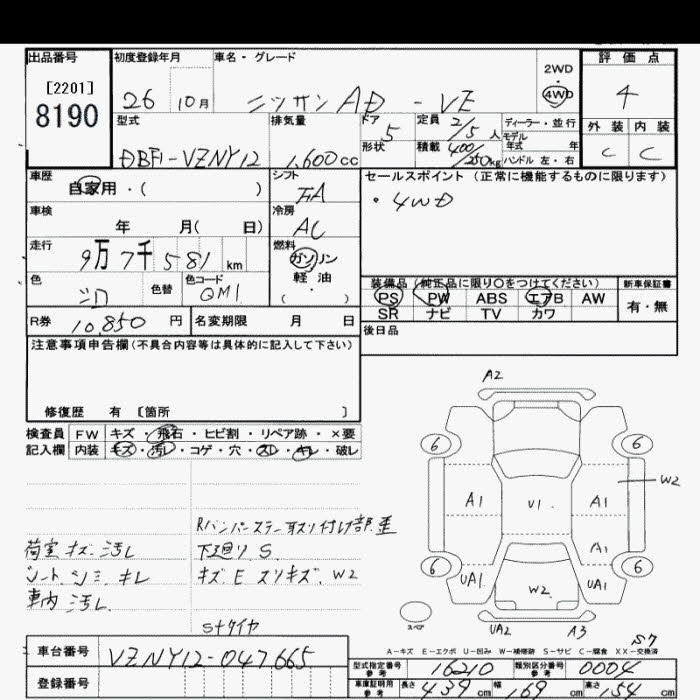 出品番号 初度登録年月 車名・グレード 評価点
[2201]
8190
26 10月 ニッサン AD - VE
2WD
4WD
4
外装 内装
C C
型式 排気量 ドア 定員 ディーラー・並行
DBF1-VZNY12 1,600cc 5 2/5人 モデル年式 年
形状 積載 400/250kg ハンドル 左・右
車歴 シフト セールスポイント（正常に機能するものに限ります）
自家用・( ) FA ・4WD
車検 冷房
年 月( 日) AC
走行 燃料
9万7千581km ガソリン
軽・油
( ・ )
色 色替 色コード
シロ QM1
装備品（純正品に限り○をつけてください） 新車保証書
PS PW ABS エアB AW 有・無
SR ナビ TV カワ
R券 10,850円 名変期限 月 日 後日品
注意事項申告欄(不具合内容等は具体的に記入して下さい)
修復歴 有 〔箇所 〕
検査員 FW キズ・飛石・ヒビ割・リペア跡・×要
記入欄 内装 キズ・汚レ・コゲ・穴・スレ・キレ・破レ
A2
6 6
W2
A1 U1 A1
A1
6 6
UA1 W2 UA1
スペア
UA2 A3
S7
Rバンパーステー取付け部歪
荷室 キズ 汚レ 下廻り S
シート シミ キレ キズ E スリキズ W2
車内 汚レ
Sナタイヤ
A-キズ E-エクボ U-凹み W-補修跡 S-サビ C-腐食 XX-交換済
車台番号 VZNY12-047665
型式指定番号 参考 16210 類別区分番号 参考 0004
登録番号
車庫証明用 参考 長さ 439cm 幅 169cm 高さ 154cm